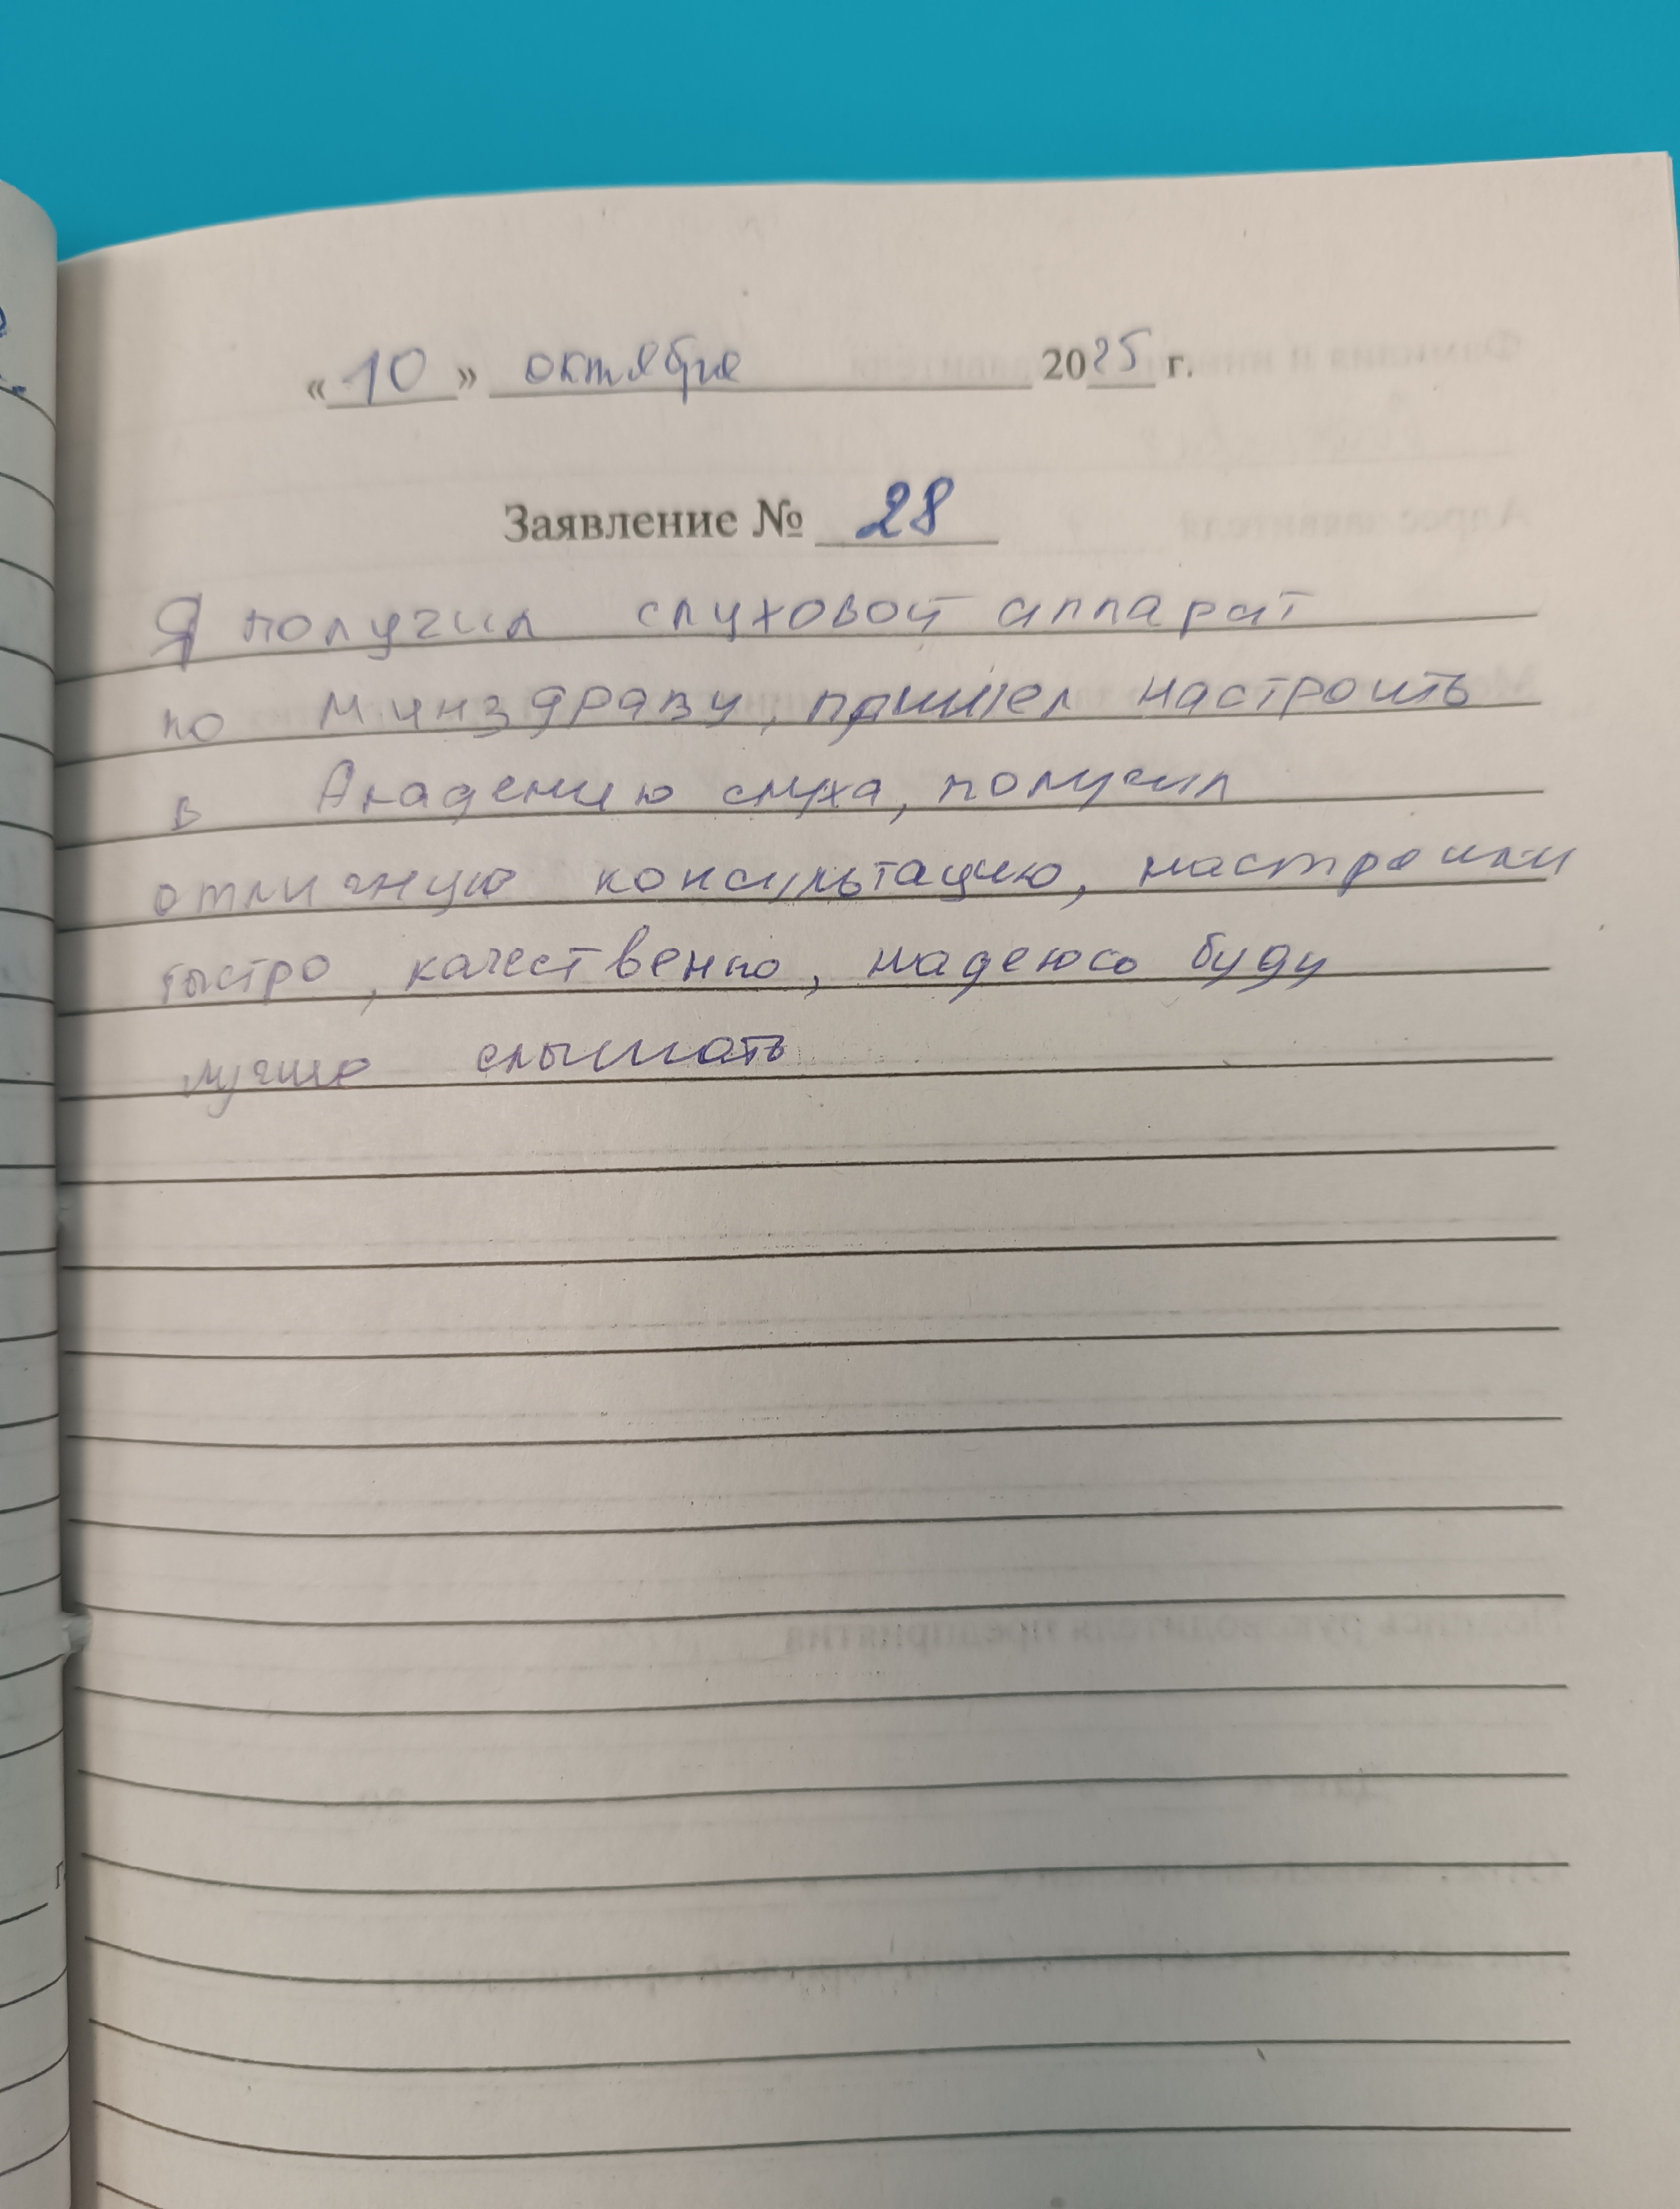 «10» октября 2025 г.
Заявление № 28
Я получил слуховой аппарат
по минздраву, пришел настроить
в Академию слуха, получил
отличную консультацию, настроили
быстро, качественно, надеюсь буду
лучше слышать